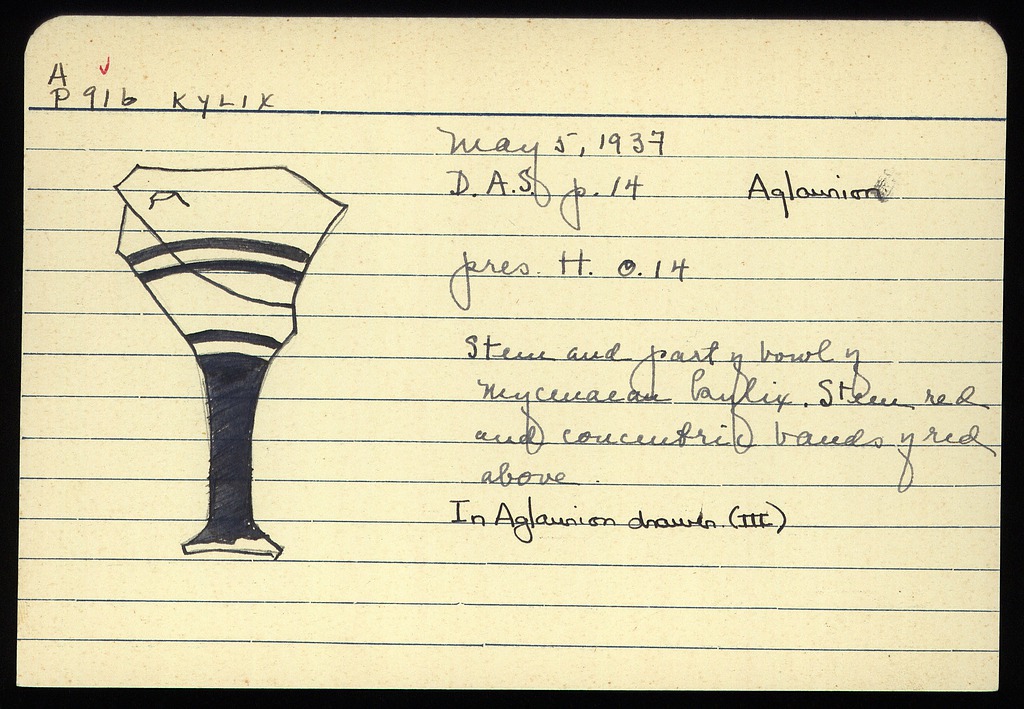 A
P 916 KYLIX
May 5, 1937
D.A.S. p. 14 Aglaurion
pres. H. 0.14
Stem and part of bowl of
Mycenaean kylix. Stem red
and concentric bands of red
above.
In Aglaurion drawer (III)